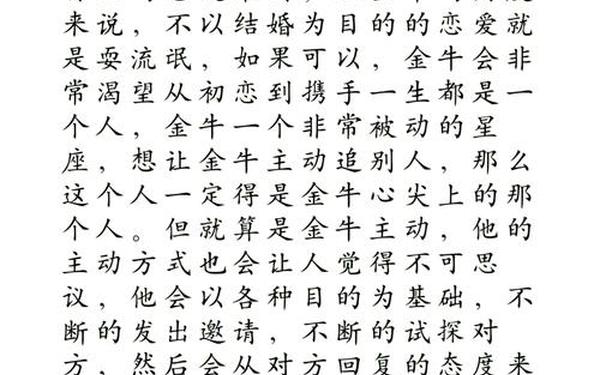 来说，不以结婚为目的的恋爱就
是耍流氓，如果可以，金牛会非
常渴望从初恋到携手一生都是一
个人，金牛一个非常被动的星
座，想让金牛主动追别人，那么
这个人一定得是金牛心尖上的那
个人。但就算是金牛主动，他的
主动方式也会让人觉得不可思
议，他会以各种目的为基础，不
断的发出邀请，不断的试探对
方，然后会从对方回复的态度来